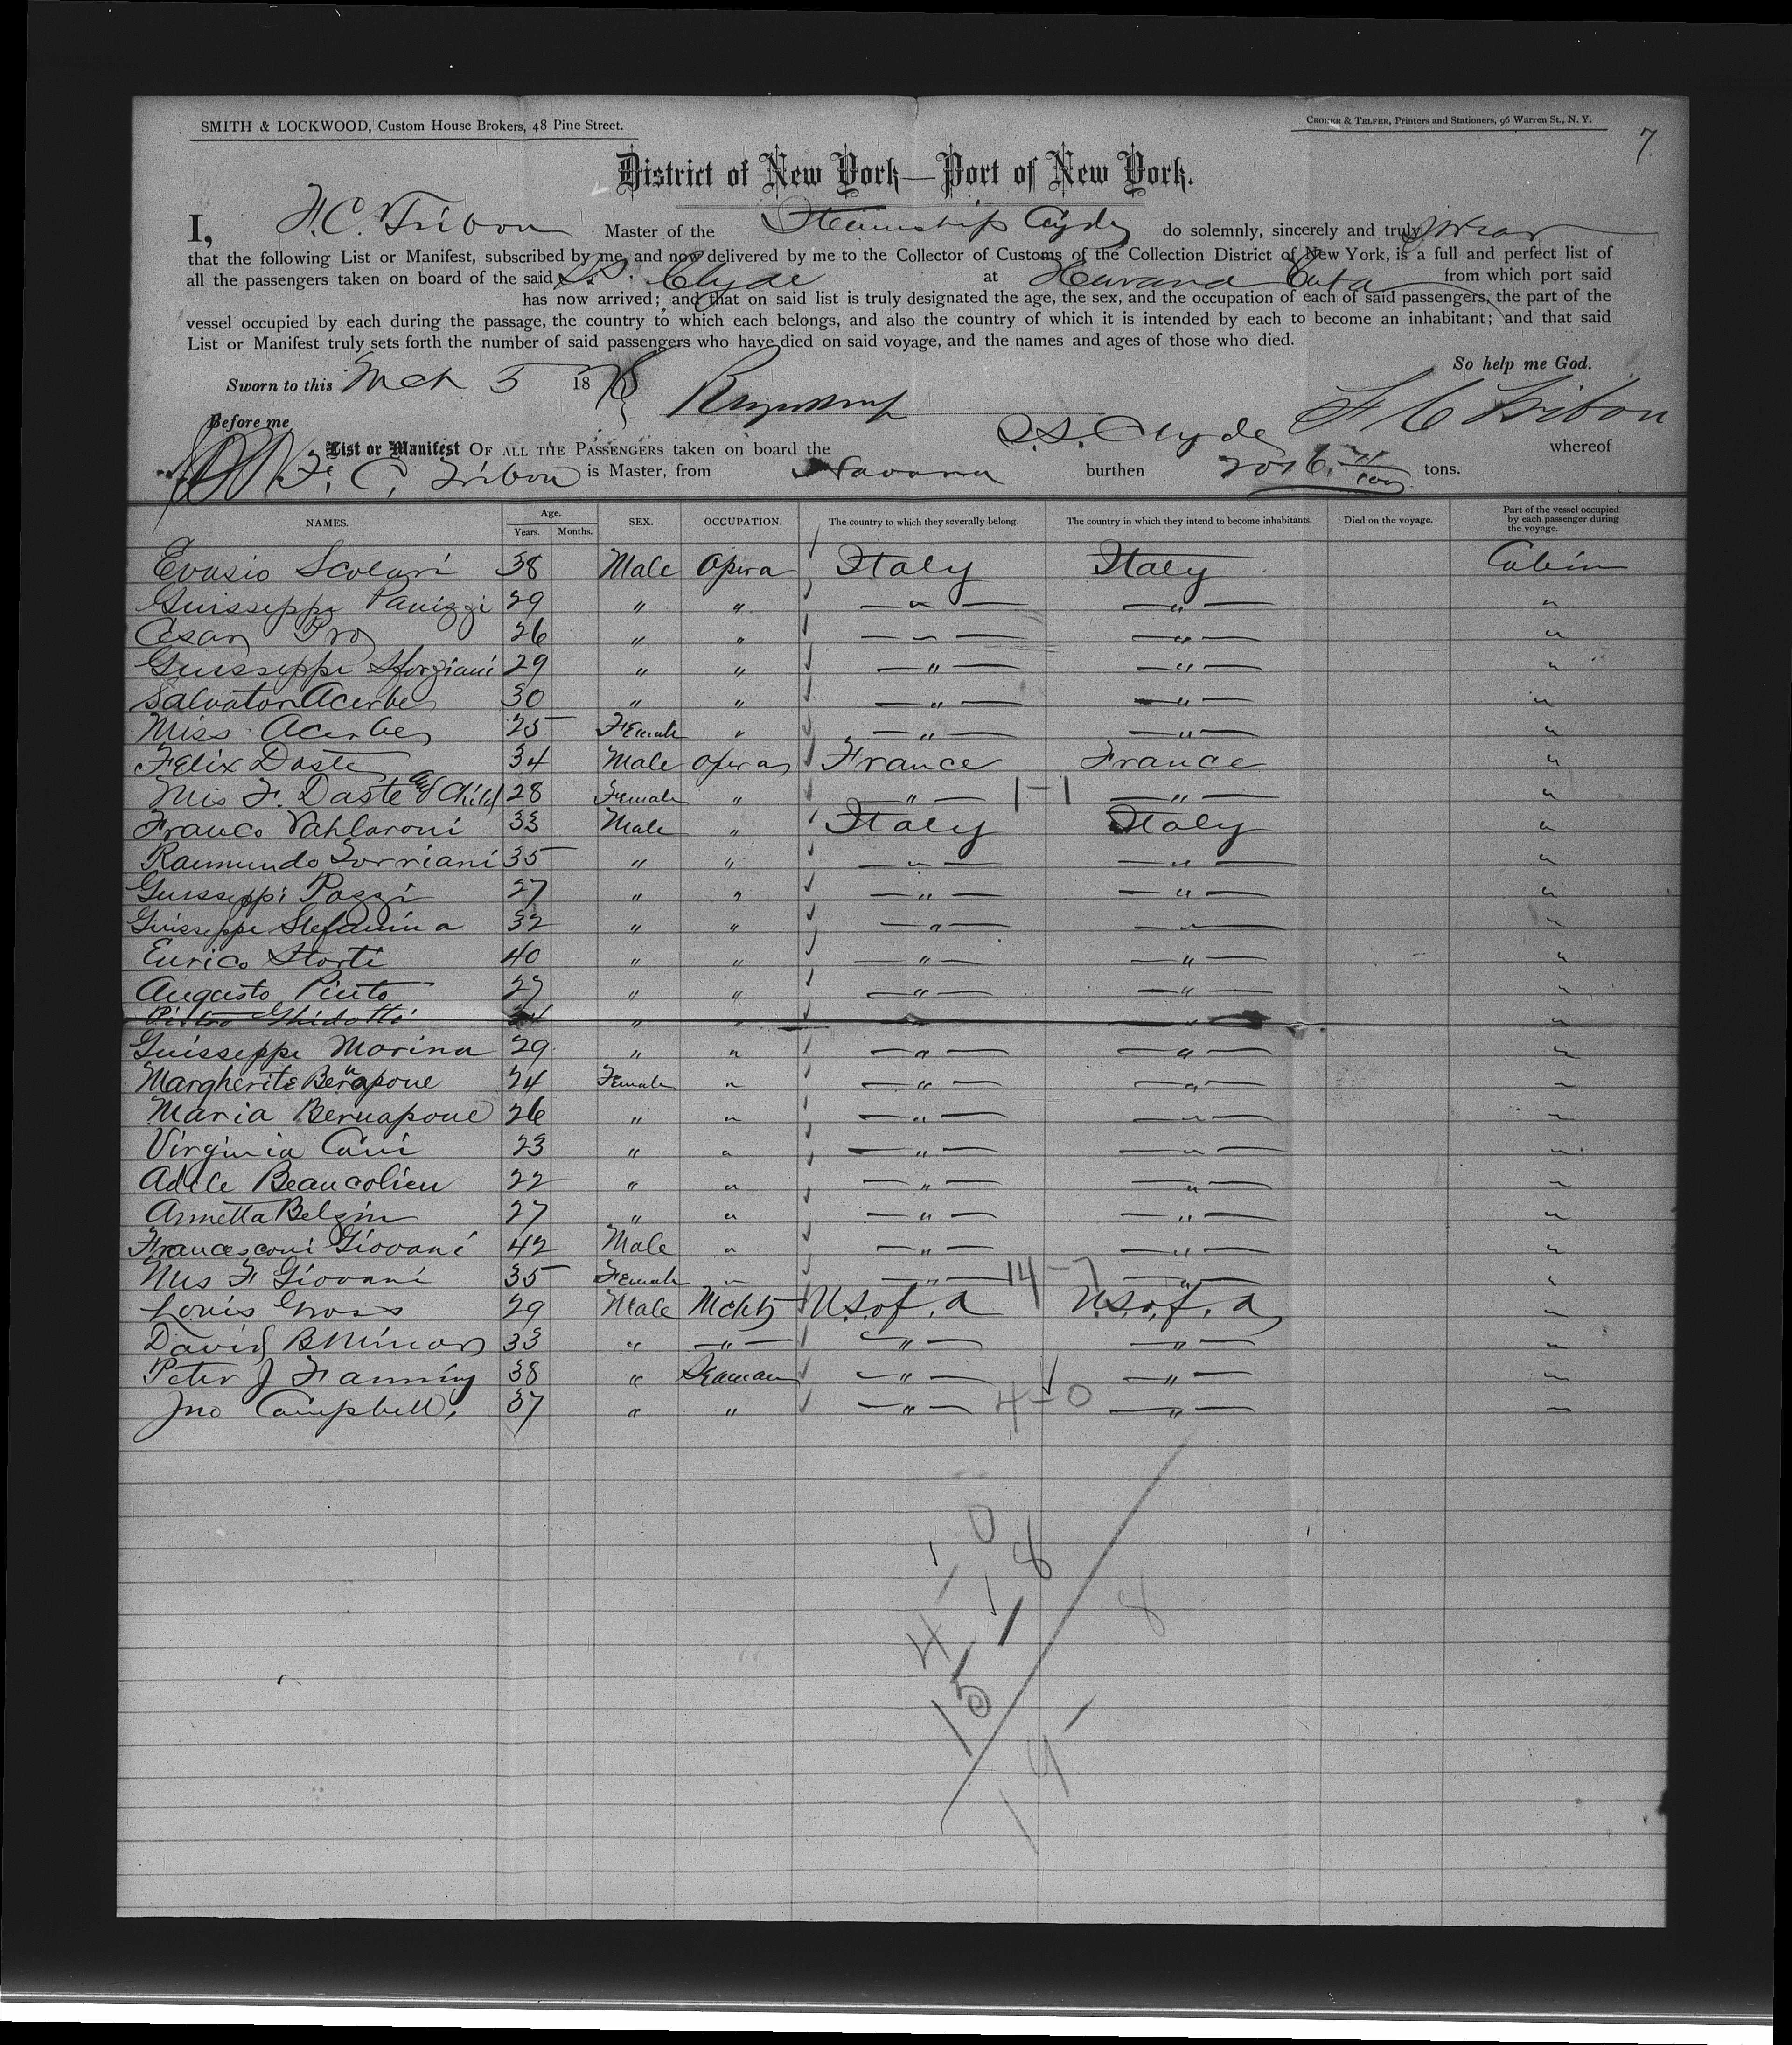 SMITH & LOCKWOOD, Custom House Brokers, 48 Pine Street.
CRONER & TELFER, Printers and Stationers, 96 Warren St., N. Y.
7
District of New York—Port of New York.
I, F. C. Tribou Master of the Steamship Clyde do solemnly, sincerely and truly swear
that the following List or Manifest, subscribed by me, and now delivered by me to the Collector of Customs of the Collection District of New York, is a full and perfect list of
all the passengers taken on board of the said S.S. Clyde at Havana Cuba from which port said
has now arrived; and that on said list is truly designated the age, the sex, and the occupation of each of said passengers, the part of the
vessel occupied by each during the passage, the country to which each belongs, and also the country of which it is intended by each to become an inhabitant; and that said
List or Manifest truly sets forth the number of said passengers who have died on said voyage, and the names and ages of those who died.
So help me God.
Sworn to this Mch 5 1878
F C Tribou
Before me
List or Manifest OF ALL THE PASSENGERS taken on board the S.S. Clyde whereof
F. C. Tribou is Master, from Havana burthen 2016 71/100 tons.
NAMES. Age. Years. Months. SEX. OCCUPATION. The country to which they severally belong. The country in which they intend to become inhabitants. Died on the voyage. Part of the vessel occupied by each passenger during the voyage.
Evasio Scolari 38 Male Opera Italy Italy Cabin
Guisseppe Panizzi 29 " " " " "
Cesar 26 " " " " "
Guisseppe Sforziani 29 " " " " "
Salvator Acerbe 30 " " " " "
Miss Acerbe 25 Female " " " "
Felix Daste 34 Male Opera France France "
Mrs F. Daste & Child 28 Female " " 1-1 " "
Franco 33 Male " Italy Italy "
Raimundo Torriani 35 " " " " "
Guisseppi Pozzi 27 " " " " "
Guisseppe Stefanina 32 " " " " "
Enrico Storti 40 " " " " "
Augusto Pinto 27 " " " " "
Pietro Ghidotti " " " " "
Guisseppe Marina 29 " " " " "
Margherite Bernapone 24 Female " " " "
Maria Bernapone 26 " " " " "
Virginia Cani 23 " " " " "
Adele Beaucolieu 22 " " " " "
Annetta Belzim 27 " " " " "
Francesconi Giovani 42 Male " " " "
Mrs F Giovani 35 Female " " 14-7 " "
Louis Gross 29 Male Mcht U.S. of. A U.S. of. A "
David B Minor 33 " " " " "
Peter J Fanning 38 " Seaman " " "
Jno Campbell, 37 " " " 4-0 " "
4-0
1
15 1 8
19-8